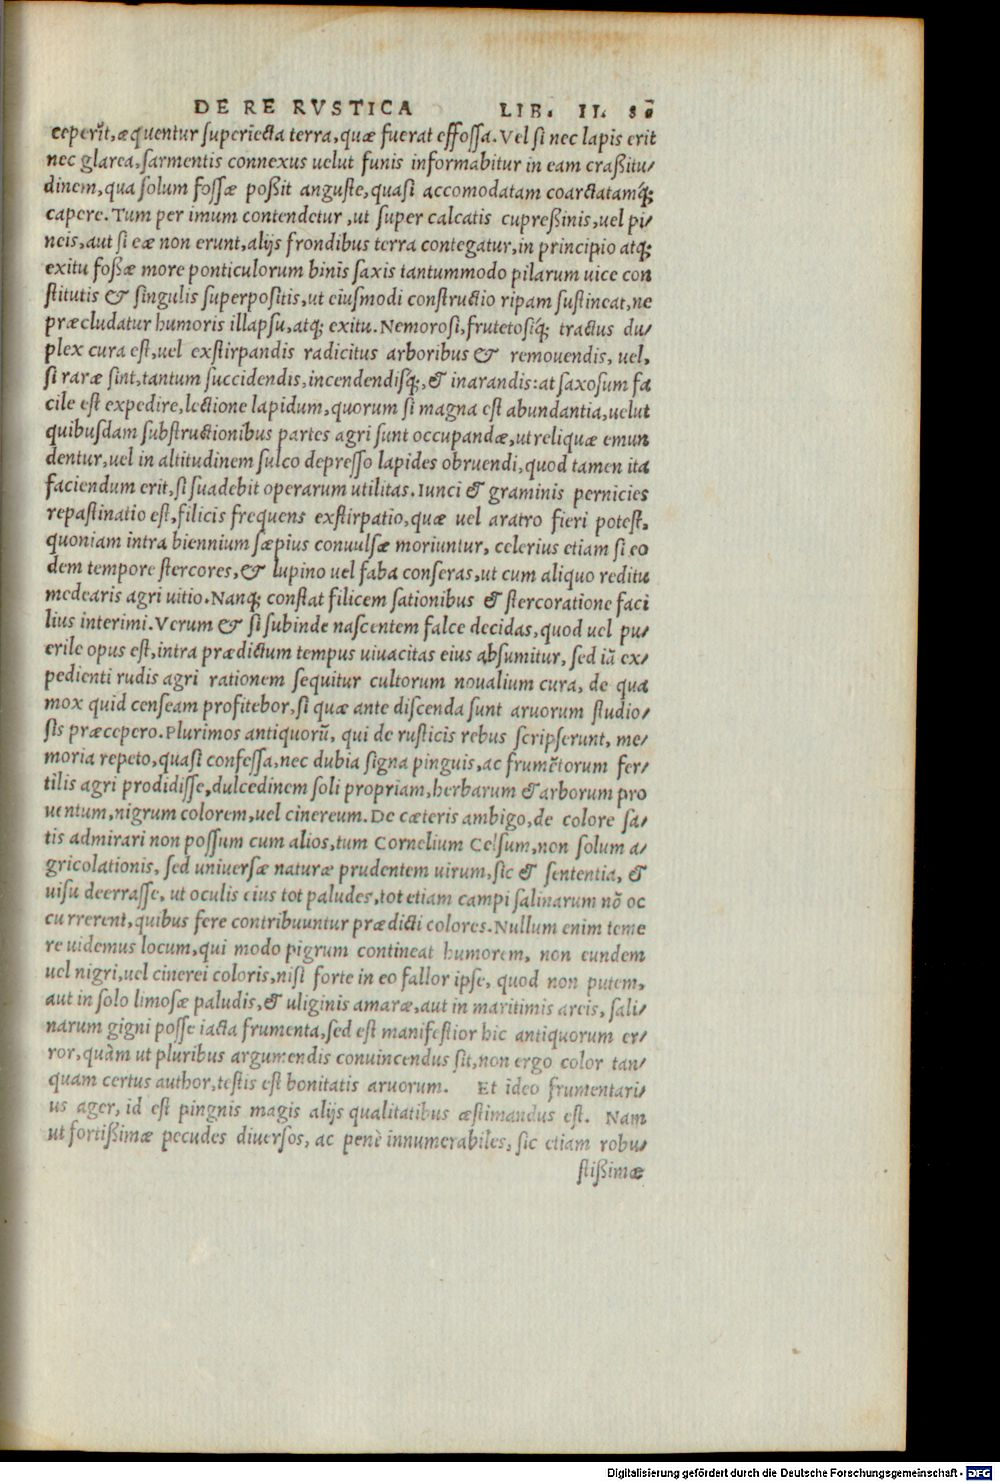 DE RE RVSTICA LIB. II. 80
ceperīt, æquentur superiecta terra, quæ fuerat effossa. Vel si nec lapis erit
nec glarea, sarmentis connexus uelut funis informabitur in eam craßitu/
dinem, qua solum fossæ poßit anguste, quasi accomodatam coarctatamq́;
capere. Tum per imum contendetur, ut super calcatis cupreßinis, uel pi/
neis, aut si eæ non erunt, alijs frondibus terra contegatur, in principio atq;
exitu foßæ more ponticulorum binis saxis tantummodo pilarum uice con
stitutis & singulis superpositis, ut eiusmodi constructio ripam sustineat, ne
præcludatur humoris illapsu, atq; exitu. Nemorosi, frutetosiq́; tractus du/
plex cura est, uel exstirpandis radicitus arboribus & remouendis, uel,
si raræ sint, tantum succidendis, incendendisq́;, & inarandis: at saxosum fa
cile est expedire, lectione lapidum, quorum si magna est abundantia, uelut
quibusdam substructionibus partes agri sunt occupandæ, ut reliquæ emun
dentur, uel in altitudinem sulco depresso lapides obruendi, quod tamen ita
faciendum erit, si suadebit operarum utilitas. Iunci & graminis pernicies
repastinatio est, filicis frequens exstirpatio, quæ uel aratro fieri potest,
quoniam intra biennium sæpius conuulsæ moriuntur, celerius etiam si eo
dem tempore stercores, & lupino uel faba conseras, ut cum aliquo reditu
medearis agri uitio. Nanq; constat filicem sationibus & stercoratione faci
lius interimi. Verum & si subinde nascentem falce decidas, quod uel pu/
erile opus est, intra prædictum tempus uiuacitas eius absumitur, sed iā ex/
pedienti rudis agri rationem sequitur cultorum noualium cura, de qua
mox quid censeam profitebor, si quæ ante discenda sunt aruorum studio/
sis præcepero. Plurimos antiquorū, qui de rusticis rebus scripserunt, me/
moria repeto, quasi confessa, nec dubia signa pinguis, ac frumētorum fer/
tilis agri prodidisse, dulcedinem soli propriam, herbarum & arborum pro
uentum, nigrum colorem, uel cinereum. De cæteris ambigo, de colore sa/
tis admirari non possum cum alios, tum Cornelium Celsum, non solum a/
gricolationis, sed uniuersæ naturæ prudentem uirum, sic & sententia, &
uisu deerrasse, ut oculis eius tot paludes, tot etiam campi salinarum nō oc
currerent, quibus fere contribuuntur prædicti colores. Nullum enim teme
re uidemus locum, qui modo pigrum contineat humorem, non eundem
uel nigri, uel cinerei coloris, nisi forte in eo fallor ipse, quod non putem,
aut in solo limosæ paludis, & uliginis amaræ, aut in maritimis areis, sali/
narum gigni posse iacta frumenta, sed est manifestior hic antiquorum er/
ror, quàm ut pluribus argumendis conuincendus sit, non ergo color tan/
quam certus author, testis est bonitatis aruorum. Et ideo frumentari/
us ager, id est pingnis magis alijs qualitatibus æstimandus est. Nam
ut fortißimæ pecudes diuersos, ac penè innumerabiles, sic etiam robu/
stißimæ
Digitalisierung gefördert durch die Deutsche Forschungsgemeinschaft - DFG